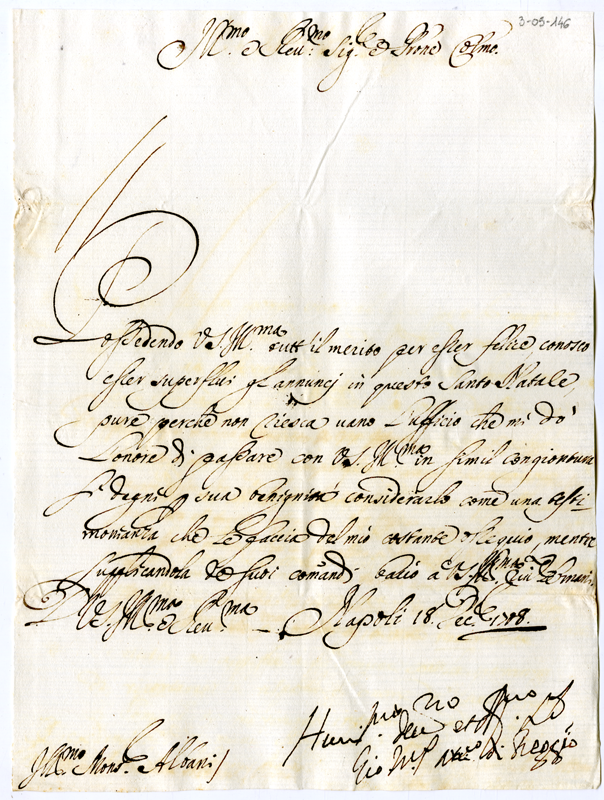 3-05-146
Ill.mo e Reu.mo Sig.re e Prone Colmo.
Possedendo V.S. Ill.ma tutt'il merito per esser felice, conosco
esser superflui gl'annuncj in questo Santo Natale,
pure perche non riesca uano l'uffìcio che mi dò
l'onore di passare con V.S. Ill.ma in simil congiontura
si degni sua benignità considerarlo come una testi
monianza che le faccia del mio costante ossequio, mentre
supplicandola de suoi comandi bacio a V.S. Ill.ma
D V.S. Ill.ma e Reu.ma Napoli 18. Dec.e 1708.
Ill.mo Mons.re Albani
Hum.mo
Gio di Reggio